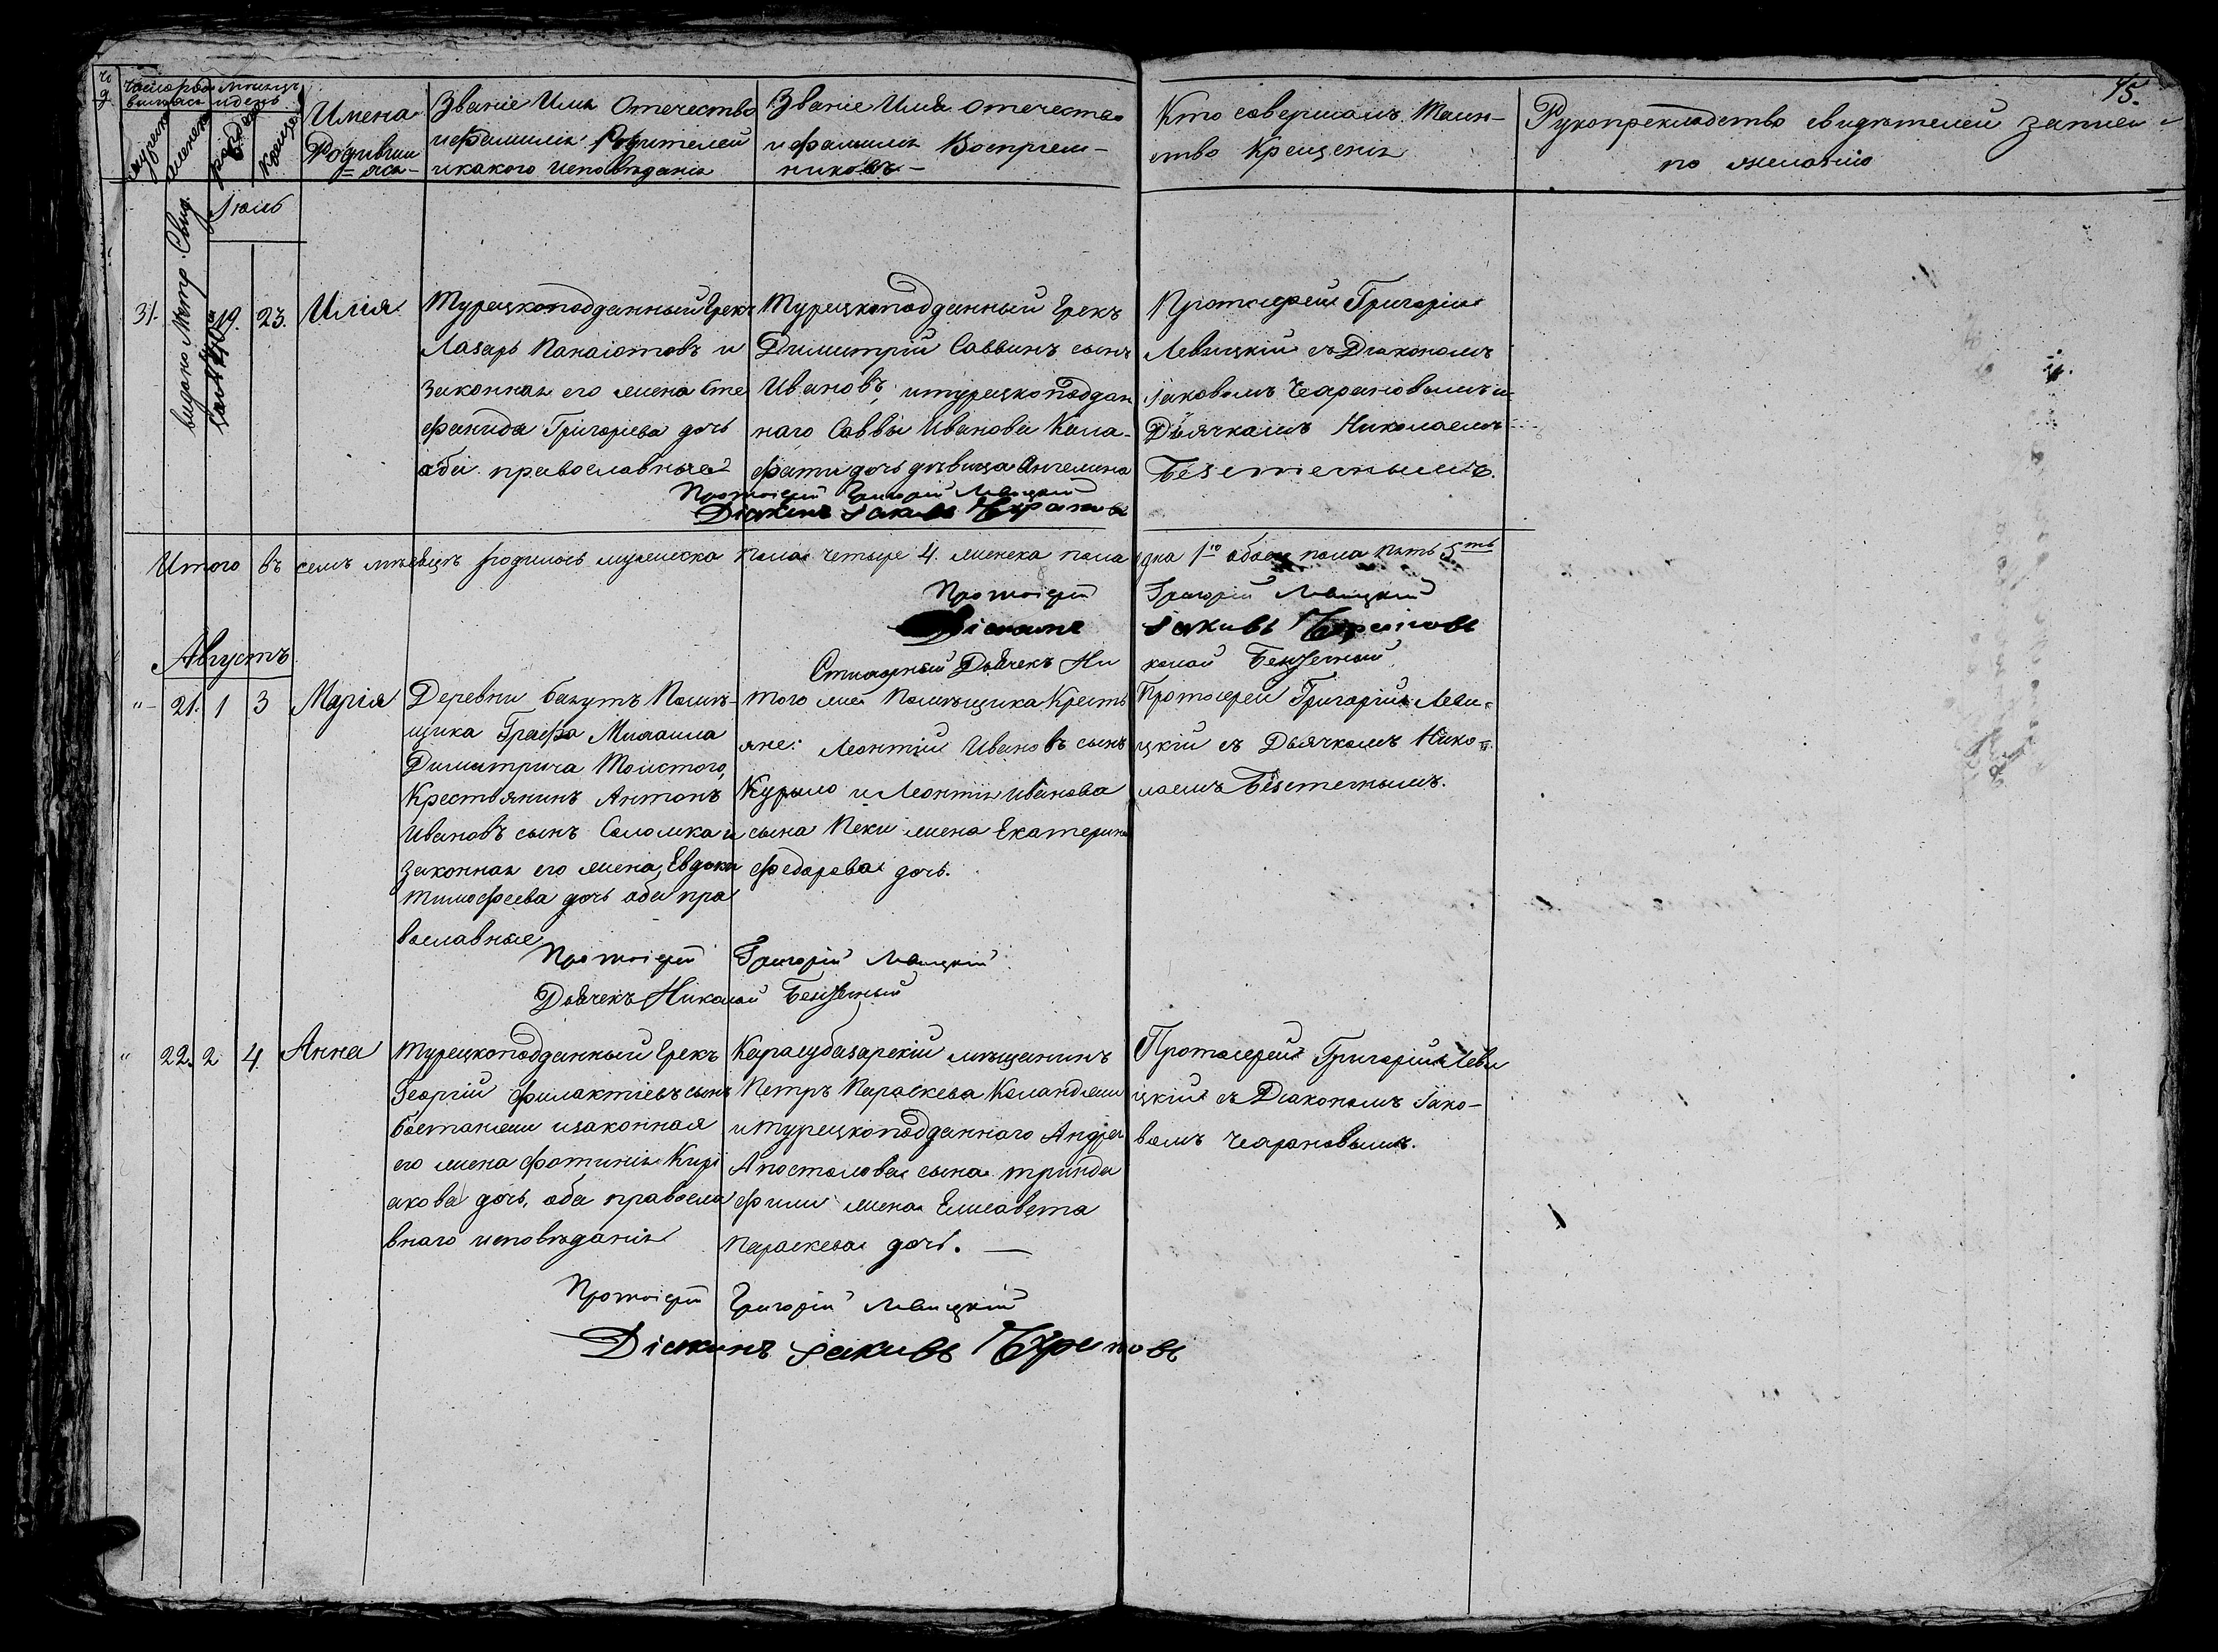 45.
Число рождившихся
Мѣсяцъ и день
мужеска
женска
рожденія
крещенія
Имена Родившихся
Званіе Имя Отечество и фамилія Родителей и какого исповѣданія
Званіе Имя Отечество и фамилія Воспріемниковъ
Кто совершалъ Таинство Крещенія
Рукоприкладство свидѣтелей записи по желанію
Іюль
видано Метр. Свид.
31.
19.
23.
Илія.
Турецкоподданный Грекъ
Лазарь Панаіотовъ и
законная его жена Сте
фанида Григорьева дочь
оба православные
Турецкоподданный Грекъ
Димитрій Саввинъ сынъ
Ивановъ, и турецкоподдан
наго Саввы Иванова Кала-
фати дочь дѣвица Ангелина
Протоіерей Григорій
Левицкій съ Діакономъ
Іаковомъ Чеарановымъ и
Дьячкомъ Николаемъ
Безстегнымъ.
Протоіерей Григорій Левицкій
Діаконъ Іаковъ
Итого въ семъ мѣсяцѣ родилось мужеска пола четыре 4. женска пола одна 1 обоего пола пять 5ть
Протоіерей Григорій Левицкій
Діаконъ Іаковъ
Дьячекъ Николай
Августъ
21.
1
3
Марія
Деревни Бакутъ Помѣ-
щика Графа Михаила
Димитрича Толстого,
Крестьянинъ Антонъ
Ивановъ сынъ Соломка и
законная его жена Евдокія
Тимофеева дочь оба пра
вославные
того же Помѣщика Кресть
яне: Леонтій Ивановъ сынъ
Курыло и Леонтія Иванова
сына Пеки жена Екатерина
Федорова дочь.
Протоіерей Григорій Леви
цкій съ Дьячкомъ Нико-
лаемъ Безстегнымъ.
Протоіерей Григорій Левицкій
Дьячекъ Николай
22.
2
4.
Анна
Турецкоподданный Грекъ
Георгій Филактіевъ сынъ
Бостанжи и законная
его жена Фотинія Кирі
акова дочь, оба правосла
внаго исповѣданія
Карасубазарскій мѣщанинъ
Петръ Параскева
и турецкоподданнаго Андрея
Апостолова сына Тринда
фили жена Елисавета
Параскева дочь.
Протоіерей Григорій Леви
цкій съ Діакономъ Іако-
вомъ Чеарановымъ.
Протоіерей Григорій Левицкій
Діаконъ Іаковъ